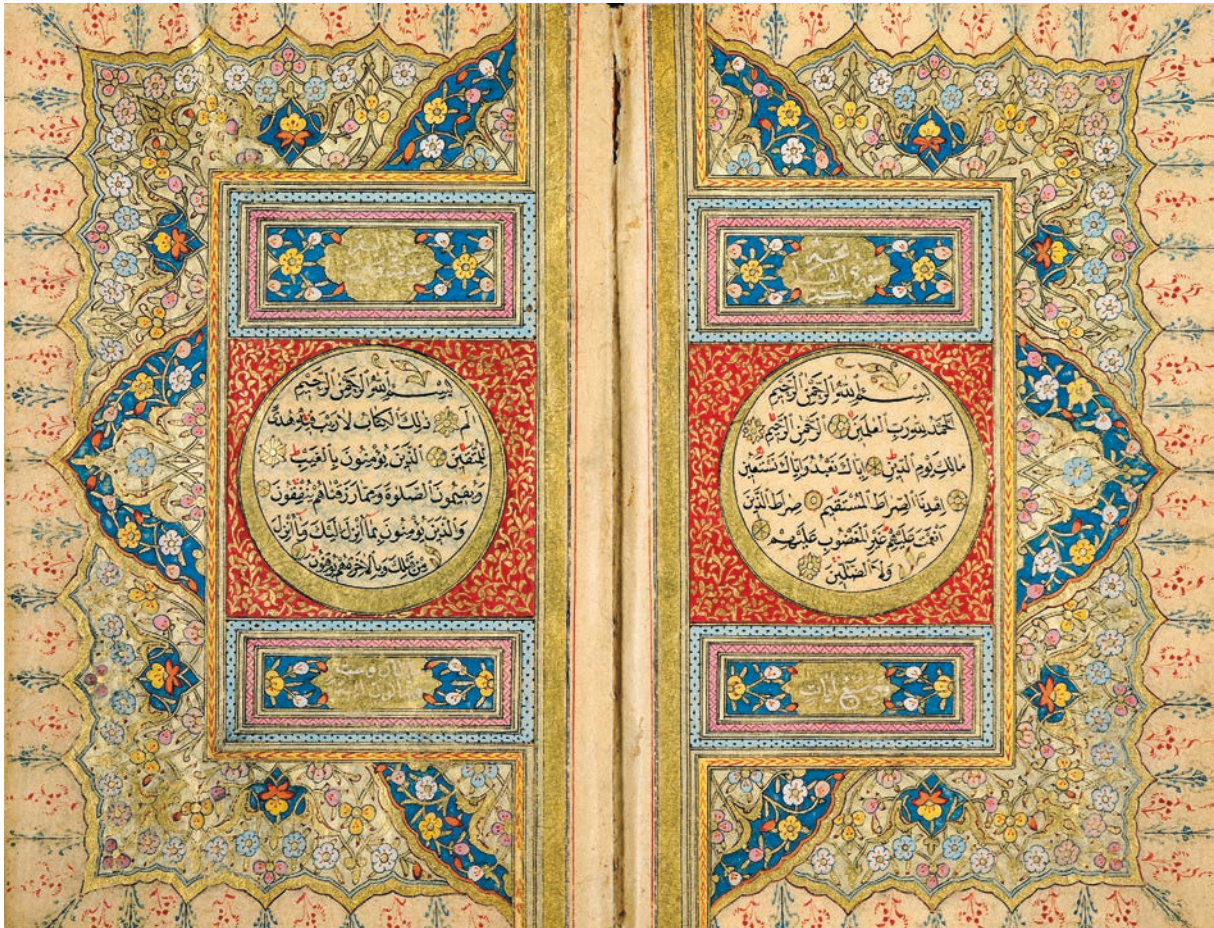 سورة الفاتحة
بِسْمِ اللّٰهِ الرَّحْمٰنِ الرَّحِيمِ
اَلْحَمْدُ لِلّٰهِ رَبِّ الْعَالَمِينَ الرَّحْمٰنِ الرَّحِيمِ
مَالِكِ يَوْمِ الدِّينِ إِيَّاكَ نَعْبُدُ وَإِيَّاكَ نَسْتَعِينُ
اِهْدِنَا الصِّرَاطَ الْمُسْتَقِيمَ صِرَاطَ الَّذِينَ
أَنْعَمْتَ عَلَيْهِمْ غَيْرِ الْمَغْضُوبِ عَلَيْهِمْ
وَلَا الضَّالِّينَ
سبع آيات
مدنية وهي
بِسْمِ اللّٰهِ الرَّحْمٰنِ الرَّحِيمِ
الم ذٰلِكَ الْكِتَابُ لَا رَيْبَ فِيهِ هُدًى
لِلْمُتَّقِينَ الَّذِينَ يُؤْمِنُونَ بِالْغَيْبِ
وَيُقِيمُونَ الصَّلٰوةَ وَمِمَّا رَزَقْنَاهُمْ يُنْفِقُونَ
وَالَّذِينَ يُؤْمِنُونَ بِمَا أُنْزِلَ إِلَيْكَ وَمَا أُنْزِلَ
مِنْ قَبْلِكَ وَبِالْآخِرَةِ هُمْ يُوقِنُونَ
مائتان وست
وثمانون آية